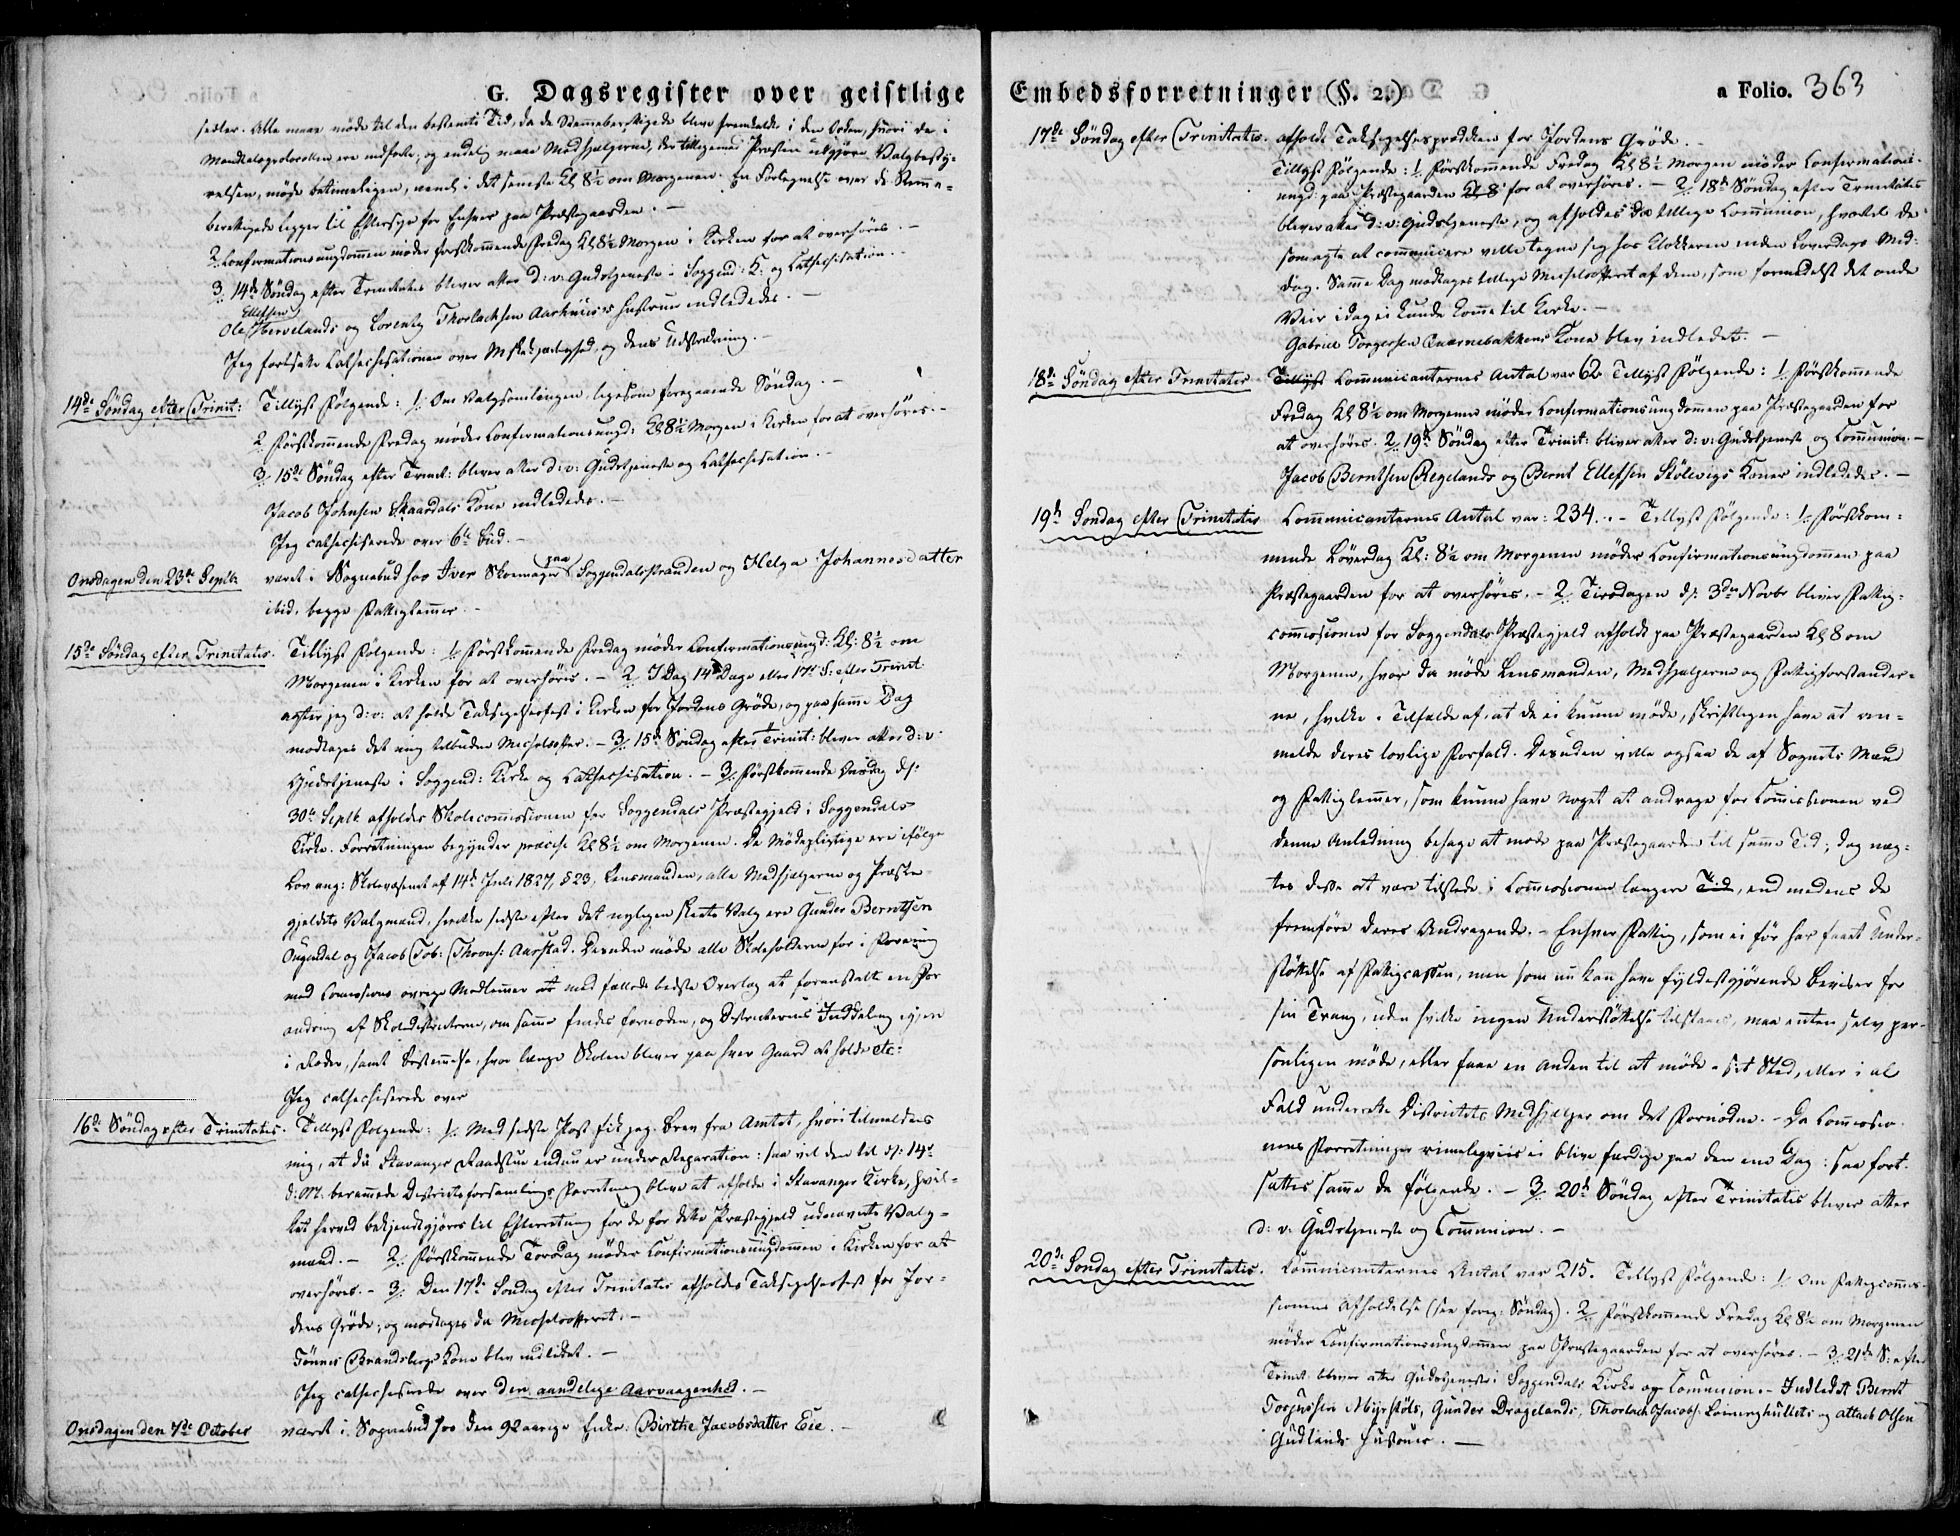 G. Dagsregister over geistlige
sedler. Alle maae møde til den bestemte Tid, da de Stemmeberettigede blive fremkaldte i den Orden, hvori de i
Mandtalsprotocollen ere indførte; og endelig maae Medhjælperne, der tilligemed Præsten udgjøre Valgbesty-
relsen, møde betimeligen, nemlig i det seneste Kl 8½ om Morgenen. En Fortegnelse over de Stemme-
berettigede ligger til Eftersyn for Enhver paa Præstegaarden. -
2. Confirmationsungdommen møder førstkommende Fredag Kl 8½ Morgen i Kirken for at overhøres. -
3. 14de Søndag efter Trinitatis bliver atter d: v: Gudstjeneste i Soggend: K: og Cathechisation. -
Ellefsen
Ole Hervelands og Lorentz Thorlachsen Aarhuus's Hustruer indlededes. -
Jeg fortsatte Cathechisationen over Miskundhjærtighed, og dens Udstrækning. -
14de Søndag efter Trinit: Tillyst Følgende: 1. Om Valgsamlingen, ligesom foregaaende Søndag. -
2. Førstkommende Fredag møder Confirmationsungd: Kl 8½ Morgen i Kirken for at overhøres. -
3. 15de Søndag efter Trinit: bliver atter d: v: Gudstjeneste og Cathechisation. -
Jacob Johnsen Skaardals Kone indlededes. -
Jeg cathechiserede over 6te Bud. -
Onsdagen den 23de Septb været i Sognebud hos Iver Skomager paa Soggendalsstranden og Helga Johannesdatter
ibid, begge Fattiglemmer. -
15de Søndag efter Trinitatis. Tillyst Følgende: 1. Førstkommende Fredag møder Confirmationsungd: Kl: 8½ om
Morgenen i Kirken for at overhøres. - 2. I Dag 14 Dage eller 17de S: efter Trinit:
agter jeg d: v: at holde Taksigelsesfest i Kirken for Jordens Grøde, og paa samme Dag
modtages det mig tilbudne Michelsoffer. - 3. 15de Søndag efter Trinit: bliver atter d: v:
Gudstjeneste i Soggend: Kirke og Cathechisation. - 3. Førstkommende Onsdag d:
30te Septb afholdes Skolecommissionen for Soggendals Præstegjeld i Soggendals
Kirke. Forretningen begynder præcise Kl 8½ om Morgenen. De Mødepligtige ere ifølge
Lov ang: Skolevæsenet af 14de Juli 1827, § 23, Lensmanden, alle Medhjælperne og Præste-
gjeldets Valgmænd, hvilke sidste efter det nyligen skeete Valg ere Gunder Berntsen
Ougendal og Jacob Tob: Thronh: Aarstad. Desuden møde alle Skoleholderne for i Forening
med Commissions øvrige Medlemmer at med fælleds bedste Overlæg at foranstalte en For-
andring af Skoledistricterne, om samme findes fornøden, og Districternes Inddeling igjen
i Roder, samt Bestemmelse, hvor længe Skolen bliver paa hver Gaard at holde etc:
Jeg cathechiserede over
16de Søndag efter Trinitatis. Tillyst Følgende: 1. Med sidste Post fik jeg Brev fra Amtet, hvori tilmeldes
mig, at da Stavanger Raadstue endnu er under Reparation: saa vil den til d: 14de
d: M. berammede Districtsforsamlings Forretning blive at afholde i Stavanger Kirke, hvil-
ket herved bekjendtgjøres til Efterretning for de for dette Præstegjeld udnævnte Valg-
mænd. - 2. Førstkommende Torsdag møder Confirmationsungdommen i Kirken for at
overhøres. - 3. Den 17de Søndag efter Trinitatis afholdes Taksigelsesfest for Jor-
dens Grøde, og modtages da Michelsofferet. -
Tønnes Brandsbergs Kone blev indledet. -
Jeg cathechiserede over den aandelige Aarvaagenhed. -
Onsdagen den 7de October været i Sognebud hos den 92 aarige Enke: Birthe Jacobsdatter Eie. -
Embedsforretninger (§. 2.)
a Folio. 363
17de Søndag efter Trinitatis. afholdt Taksigelsesprædiken for Jordens Grøde. -
Tillyst Følgende: 1. Førstkommende Fredag Kl 8½ Morgen møder Confirmations-
ungd: paa Præstegaarden Kl 8 for at overhøres. - 2. 18de Søndag efter Trinitatis
bliver atter d: v: Gudstjeneste, og afholdes da tillige Communion, hvortil de
som agte at communicere ville tegne sig hos Klokkeren inden Løverdags Mid-
dag. Samme Dag modtages tillige Michelsofferet af dem, som formedelst det onde
Veir idag ei kunde komme til Kirke. -
Gabriel Torgersen Qværnebakkens Kone blev indledet. -
18de Søndag efter Trinitatis Tillyst Communicanternes Antal var 62. Tillyst Følgende: 1. Førstkommende
Fredag Kl 8½ om Morgenen møder Confirmationsungdommen paa Præstegaarden for
at overhøres. 2. 19de Søndag efter Trinit: bliver atter d: v: Gudstjeneste og Communion. -
Jacob Berntsen Regelands og Bernt Ellefsen Stølevigs Koner indlededes. -
19de Søndag efter Trinitatis Communicanternes Antal var: 234. - Tillyst Følgende: 1. Førstkom-
mende Løverdag Kl: 8½ om Morgenen møder Confirmationsungdommen paa
Præstegaarden for at overhøres. - 2. Tirsdagen d: 3die Novbr bliver Fattig-
commissionen for Soggendals Præstegjeld afholdt paa Præstegaarden Kl 8 om
Morgenen, hvor da møde Lensmanden, Medhjælperne og Fattigforstander-
ne, hvilke i Tilfælde af, at de ei kunne møde, skriftligen have at an-
melde deres lovlige Forfald. Desuden ville ogsaa de af Sognets Mænd
og Fattiglemmer, som kunne have Noget at andrage for Commissionen ved
denne Anledning behage at møde paa Præstegaarden til samme Tid; dog næg-
tes disse at være tilstede i Commissionen længere Tid, end medens de
fremføre deres Andragende. - Enhver Fattig, som ei før har faaet Under-
støttelse af Fattigcassen, men som nu kan have fyldestgjørende Beviser for
sin Trang, uden hvilke ingen Understøttelse tilstaaes, maa enten selv per-
sonligen møde, eller faae en Anden til at møde i sit Sted, eller i al
Fald underrette Districtets Medhjælper om det Fornødne. - Da Commissio-
nens Forretninger rimeligviis ei blive færdige paa den ene Dag: saa fort-
sættes samme de følgende. - 3. 20de Søndag efter Trinitatis bliver atter
d: v: Gudstjeneste og Communion. -
20de Søndag efter Trinitatis. Communicanternes Antal var 215. Tillyst Følgende: 1. Om Fattigcommis-
sionens Afholdelse (see foreg: Søndag). 2. Førstkommende Fredag Kl 8½ om Morgenen
møder Confirmationsungdommen paa Præstegaarden for at overhøres. - 3. 21de S: efter
Trinit bliver atter Gudstjeneste i Soggendals Kirke og Communion. - Indledet Bernt
Torjussen Myrstøls, Gunder Dragelands, Thorlach Jacobs: Leininghullets og Attack Olsen
Gudlands Hustruer. -